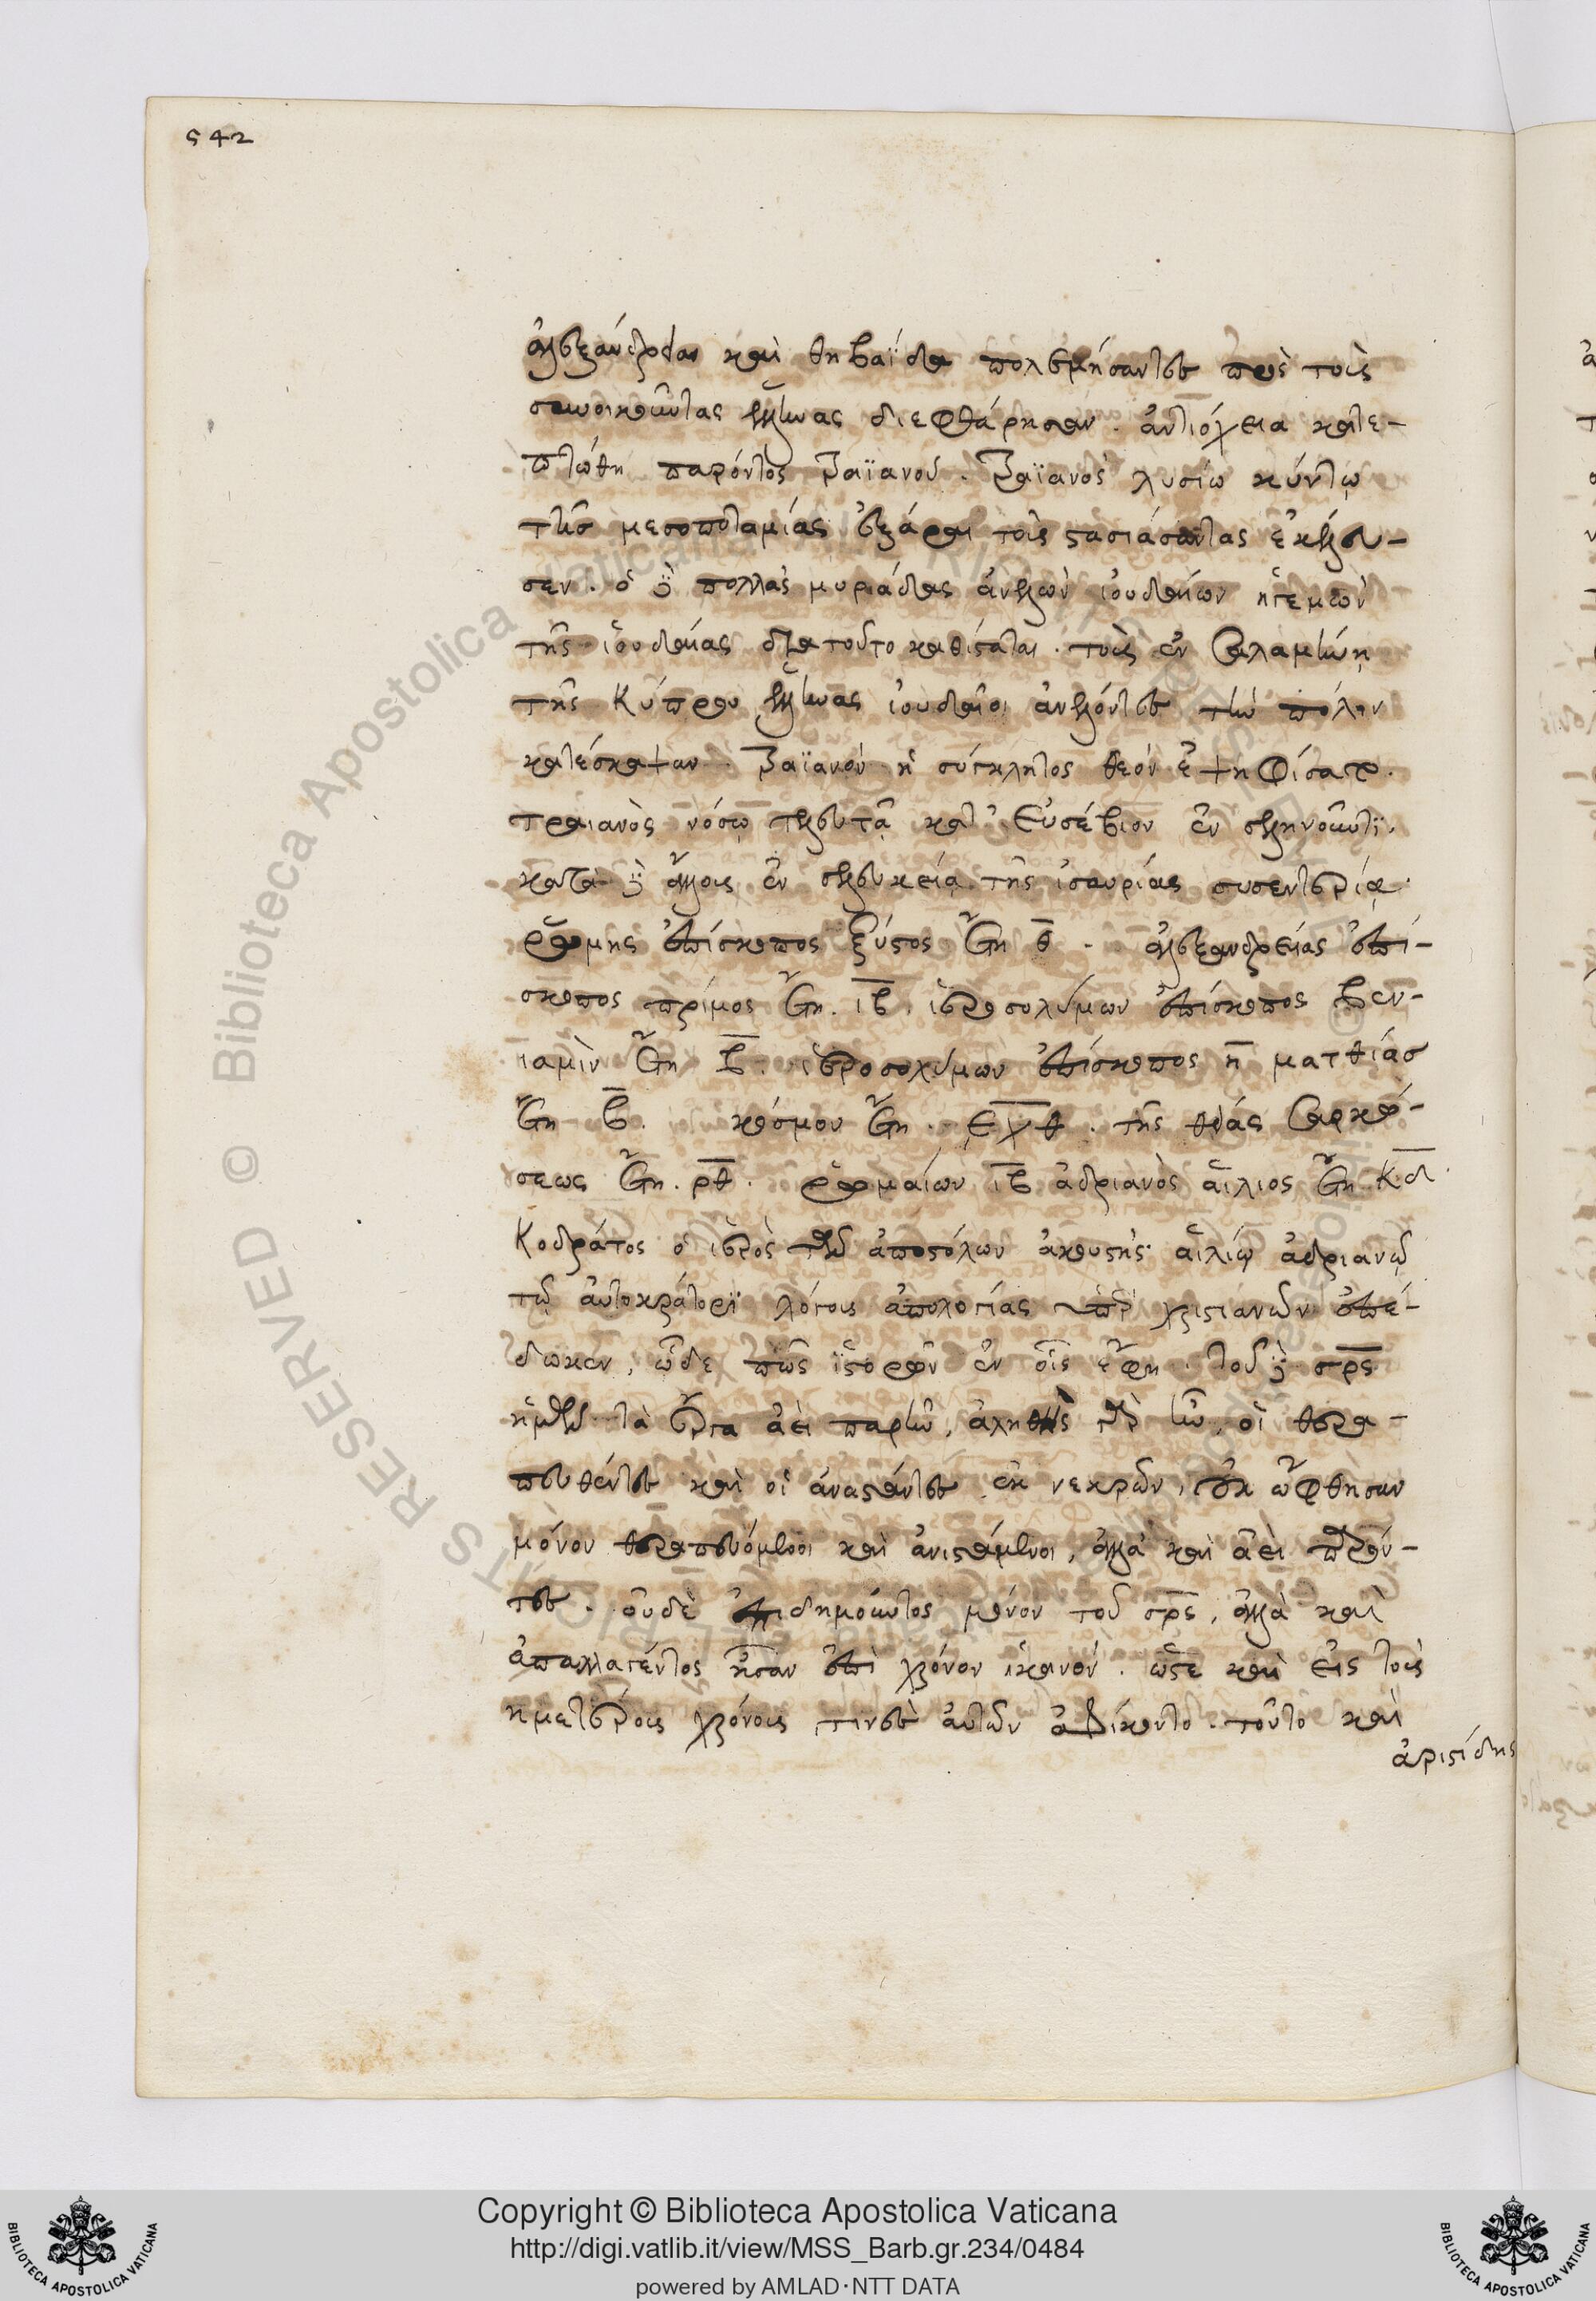 542
ἀλεξάνδρειαν καὶ θηβαΐδα πολεμήσαντες πρὸς τοὺς
συνοικοῦντας ἕλληνας διεφθάρησαν. ἀντιόχεια κατε-
πτώθη παρόντος τραϊανοῦ. τραϊανὸς λυσίω κύντῳ
τῆς μεσοποταμίας ἐξάραι τοὺς στασιάσαντας ἐκέλευ-
σεν. ὁ δὲ πολλὰς μυριάδας ἀνελὼν ἰουδαίων ἡγεμὼν
τῆς ἰουδαίας διὰ τοῦτο καθίσταται. τοὺς ἐν σαλαμίνῃ
τῆς Κύπρου ἕλληνας ἰουδαῖοι ἀνελόντες τὴν πόλιν
κατέσκαψαν. τραϊανὸν ἡ σύγκλητος θεὸν ἐψηφίσατο.
τραιανὸς νόσῳ τελευτᾷ κατ' Εὐσέβιον ἐν σεληνοῦντϊ.
κατὰ δὲ ἄλλους ἐν σελευκείᾳ τῆς ἰσαυρίας δυσεντερίᾳ.
ῥώμης ἐπίσκοπος ξύστος ἔτη θ. ἀλεξανδρείας ἐπί-
σκοπος πρίμος ἔτη. ιβ. ἱεροσολύμων ἐπίσκοπος βεν-
ιαμὶν ἔτη β. ἱεροσολύμων ἐπίσκοπος η ματθίας
ἔτη β. κόσμου ἔτη. εχθ. τῆς θείας σαρκώ-
σεως ἔτη. ρθ. ῥωμαίων ιβ ἀδριανὸς αἴλιος ἔτη κδ.
Κοδράτος ὁ ἱερὸς τῶν ἀποστόλων ἀκουστὴς αἰλίῳ ἀδριανῷ
τῷ αὐτοκράτορϊ λόγους ἀπολογίας ὑπὲρ χριστιανῶν ἐπέ-
δωκεν, ὧδέ πως ἱστορῶν ἐν οἷς ἔφη. τοῦ δὲ σρς
ἡμῶν τὰ ἔργα ἀεὶ παρῆν, ἀληθῆ γὰρ ἦν, οἱ θερα-
πευθέντες καὶ οἱ ἀναστάντες ἐκ νεκρῶν, οὐκ ὤφθησαν
μόνον θεραπευόμενοι καὶ ἀνιστάμενοι, ἀλλὰ καὶ ἀεὶ παρόν-
τες. οὐδὲ ἐπιδημοῦντος μόνον τοῦ σρς, ἀλλὰ καὶ
ἀπαλλαγέντος ἦσαν ἐπὶ χρόνον ἱκανόν. ὥστε καὶ εἰς τοὺς
ἡμετέρους χρόνους τινὲς αὐτῶν ἀφίκοντο. τοῦτο καὶ
ἀριστείδης
Copyright © Biblioteca Apostolica Vaticana
http://digi.vatlib.it/view/MSS_Barb.gr.234/0484
powered by AMLAD·NTT DATA